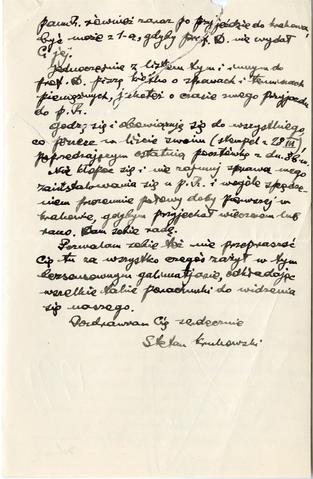 pamt. również zaraz po przyjeździe do Krakowa,
być może z 1-a, gdyby prof. D. nie wydał
Ci jej.
Jednocześnie z listem tym i innym do
prof. D. piszę też o sprawach i terminach
pieniężnych, jakoteż o czasie swego przyjazdu
do p. K.
Godzę się i obowiązuję się do wszystkiego,
co piszesz w liście swoim (stempel z 28 III),
poprzedzającym ostatnią pocztówkę z dn. 30 m.
Nie kłopocz się i nie zajmuj sprawą mego
zainstalowania się u p. K. i wogóle spędze-
niem przezemnie połowy doby pierwszej w
Krakowie, gdybym przyjechał wieczorem lub
rano. Dam sobie radę.
Pozwalam sobie też nie przepraszać
Cię tu za wszystko czegoś zażył w tym
bezsensownym galimatjasie, odkładając
wszelkie takie porachunki do widzenia
się naszego.
Pozdrawiam Cię serdecznie
Stefan Krukowski